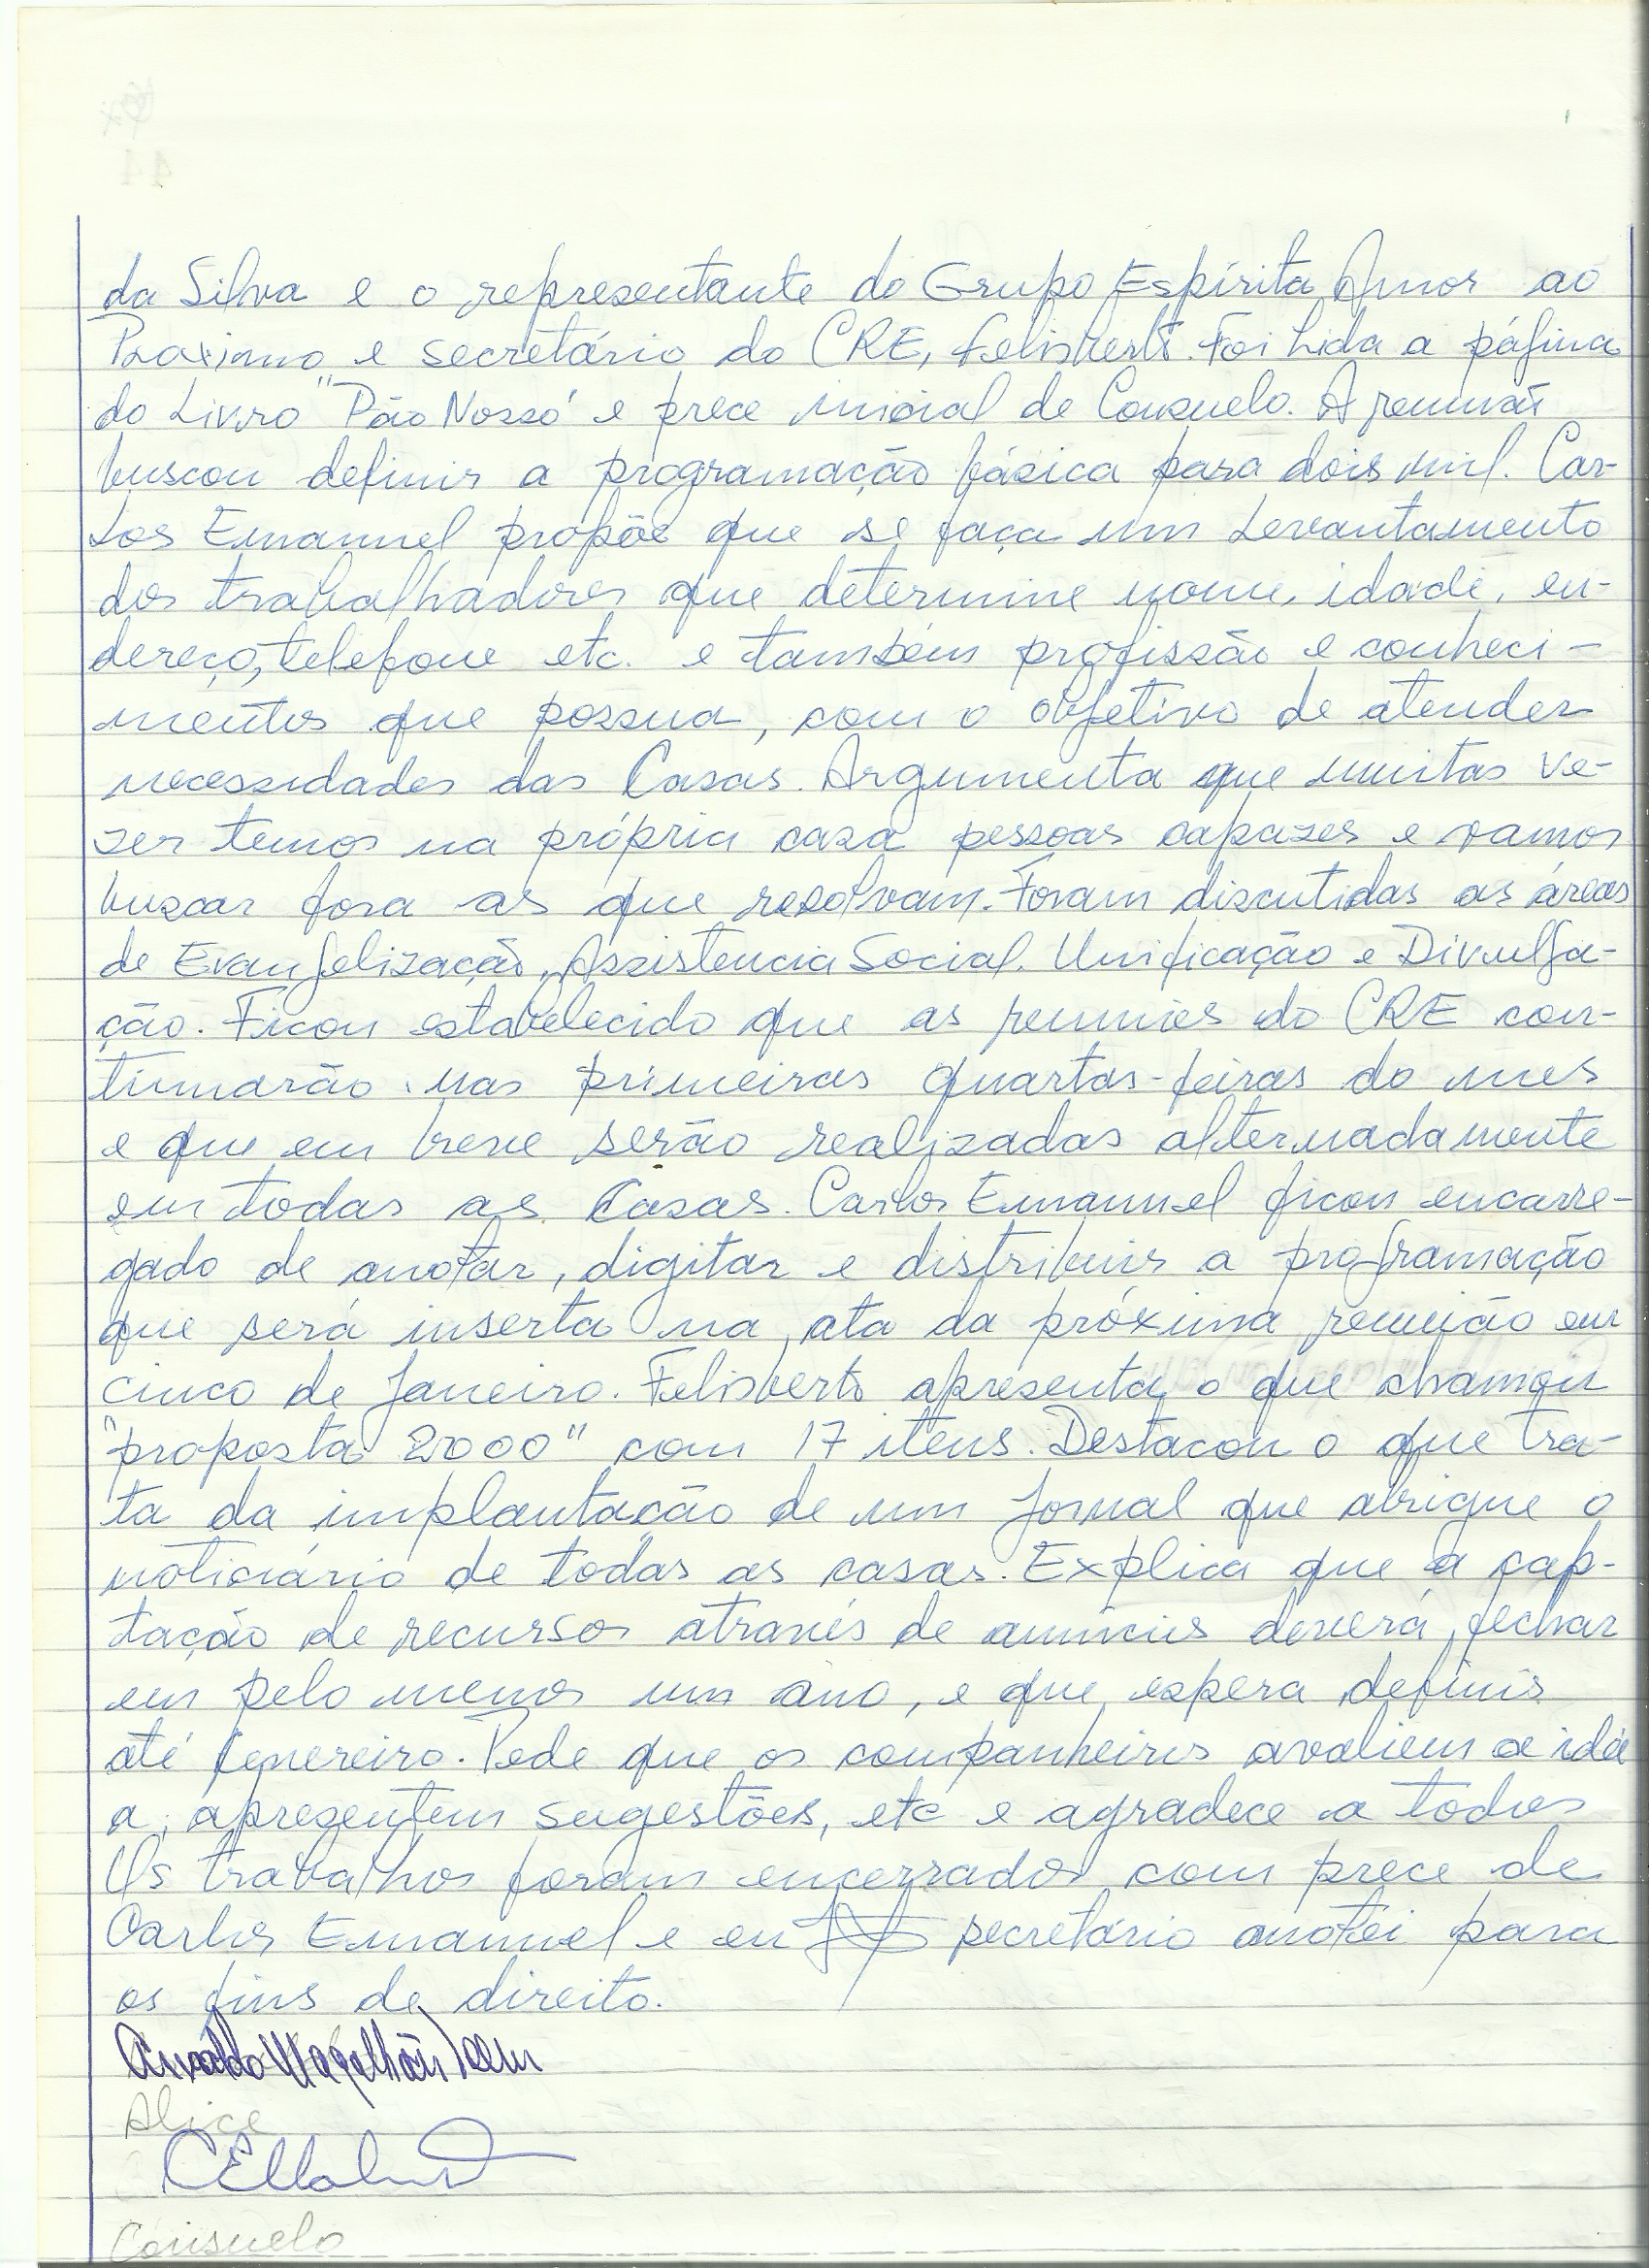 da Silva e o representante do Grupo Espírita Amor ao
Proximo e secretário do CRE, Felisberto. Foi Lida a página
do Livro "Pão Nosso" e prece inicial de Consuelo. A reunião
buscou definir a programação básica para dois mil. Car-
los Emannuel propõe que se faça um Levantamento
dos trabalhadores que determine nome, idade, en-
dereço, telefone etc. e também profissão e conheci-
mentos que possua, com o objetivo de atender
necessidades das Casas. Argumenta que muitas ve-
zes temos na própria casa pessoas capazes e vamos
buscar fora as que resolvam. Foram discutidas as áreas
de Evangelização, Assistencia Social. Unificação e Divulga-
ção. Ficou estabelecido que as reuniões do CRE con-
tinuarão nas primeiras quartas-feiras do mes
e que em breve serão realizadas alternadamente
em todas as Casas. Carlos Emannuel ficou encarre-
gado de anotar, digitar e distribuir a programação
que será inserta na ata da próxima reunião em
cinco de Janeiro. Felisberto apresenta o que chamou
"proposta 2000" com 17 itens. Destacou o que tra-
ta da implantação de um Jornal que abrigue o
noticiário de todas as casas. Explica que a cap-
tação de recursos através de anúncios deverá fechar
em pelo menos um ano, e que espera definir
até fevereiro. Pede que os companheiros avaliem a idé
a, apresentem sugestões, etc e agradece a todos
Os trabalhos foram encerrados com prece de
Carlos Emannuel e eu secretário anotei para
os fins de direito.
Alice
Consuelo